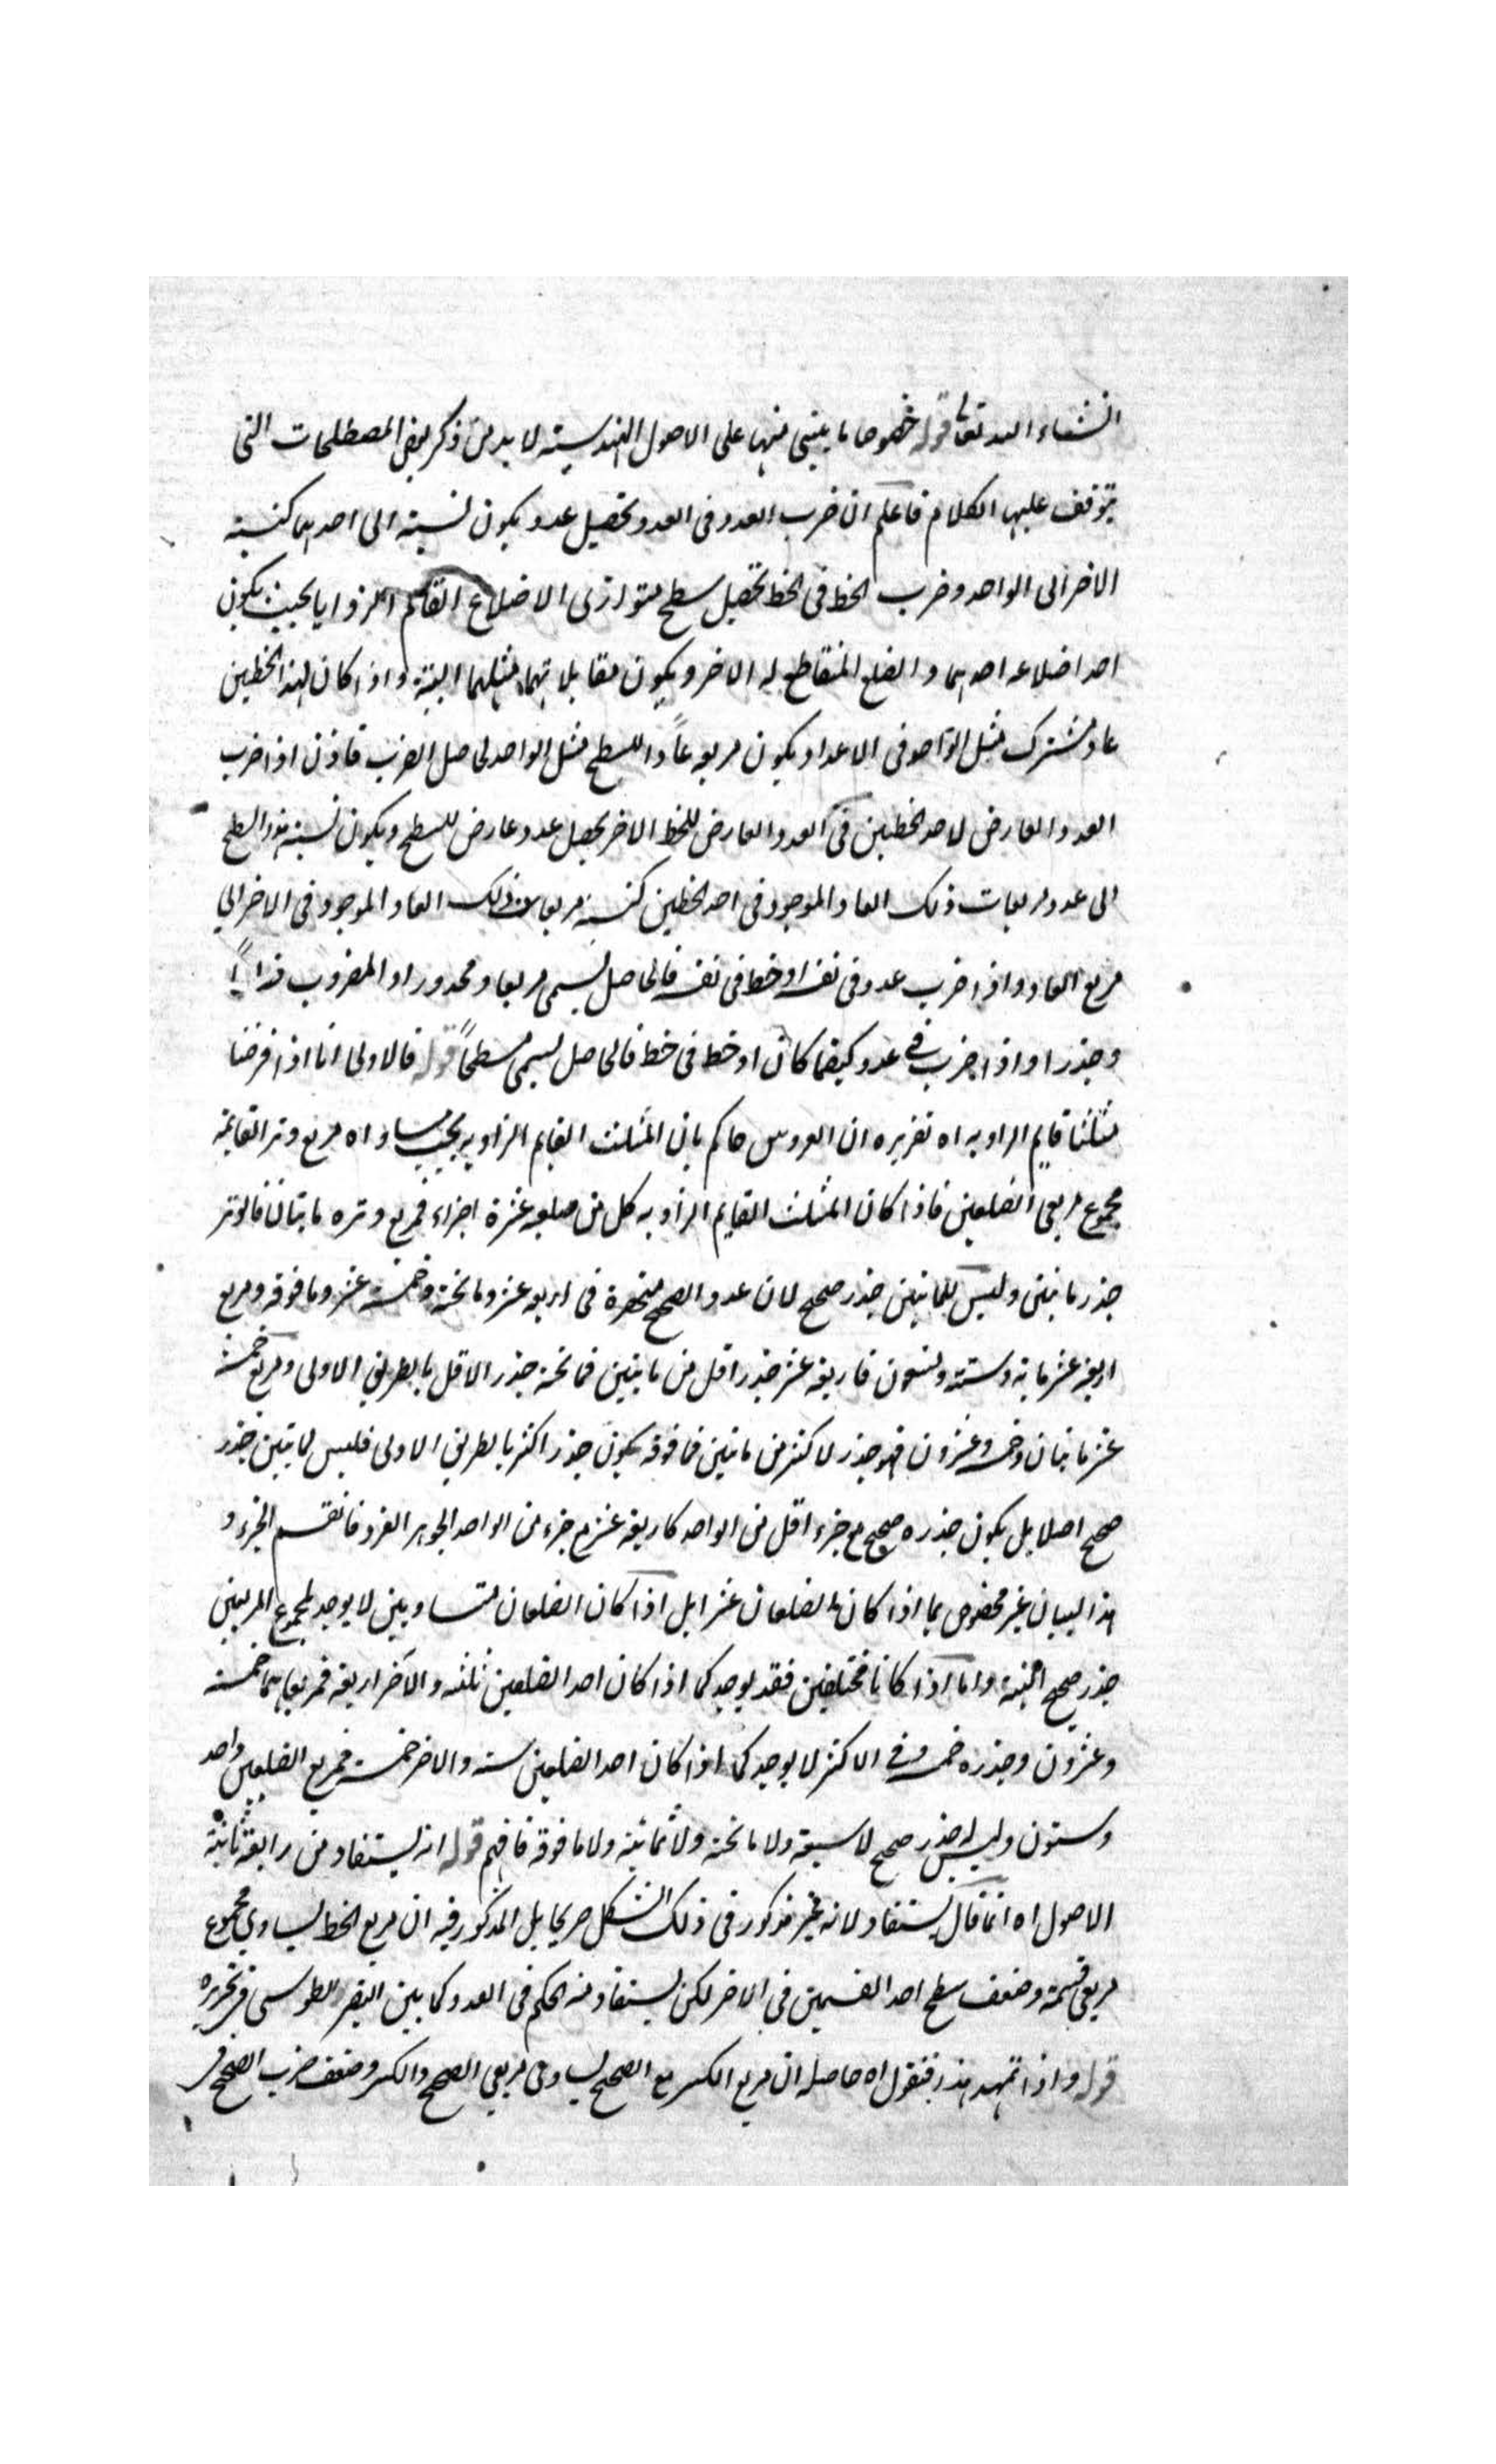 انشاء الله تعالى قوله خصوصا ما يبتنى منها على الاصول الهندسية لا بد من ذكر بعض المصطلحات التى
يتوقف عليها الكلام فاعلم ان ضرب العدد فى العدد تحصيل عدد يكون نسبته الى احدهما كنسبة
الاخر الى الواحد وضرب الخط فى الخط تحصيل سطح متوازى الاضلاع القائم الزوايا بحيث يكون
احد اضلاعه احدهما والضلع المتقاطع له الاخر ويكون مقابلاتهما مثلهما البتة واذا كان لهذا الخطين
عاد مشترك مثل الواحد فى الاعداد يكون مربعه عادا للسطح مثل الواحد لحاصل الضرب فاذن اذا ضرب
العدد العارض لاحد الخطين فى العدد العارض للخط الاخر يحصل عدد عارض للسطح ويكون نسبة هذا السطح
الى عدد مربعات ذلك العاد الموجود فى احد الخطين كنسبة مربعات ذلك العاد الموجود فى الاخر الى
مربع العاد واذا ضرب عدد فى نفسه او خط فى نفسه فالحاصل يسمى مربعا ومجذورا والمضروب
وجذرا واذا ضرب فى عدد كيفما كان او خط فى خط فالحاصل يسمى مسطحا قوله فالاولى انا اذا فرضنا
مثلثا قايم الزاويه اه تقريره ان العروس حاكم بان المثلث القايم الزاويه يجب مساواه مربع وتر القايمة
مجموع مربعى الضلعين فاذا كان المثلث القايم الزاويه كل من ضلعيه عشرة اجزاء فمربع وتره مايتان فالوتر
جذر مايتين وليس للمايتين جذر صحيح لان عدد الصحيح منحصرة فى اربعه عشر وما تحته وخمسة عشر وما فوقه ومربع
اربعه عشر مايه وستة وتسعون فاربعه عشر جذر اقل من مايتين فما تحته جذر الاقل بالطريق الاولى ومربع خمسة
عشر مايتان وخمسه وعشرون فهو جذر لاكثر من مايتين فما فوقه يكون جذر اكثر بالطريق الاولى فليس لمايتين جذر
صحيح اصلا بل يكون جذره صحيح مع جزء اقل من الواحد كاربعه عشر مع جزء من الواحد الجوهر الفرد فانقسم الجزء و
هذا البيان غير مخصوص بما اذا كان الضلعان عشرا بل اذا كان الضلعان متساويين لا يوجد لمجموع المربعين
جذر صحيح البتة واما اذا كانا مختلفين فقد يوجد كما اذا كان احد الضلعين ثلثه والآخر اربعه فمربعاهما خمسة
وعشرون وجذره خمسه وفى الاكثر لا يوجد كما اذا كان احد الضلعين سته والاخر خمسة فمربع الضلعين واحد
وستون وليس له جذر صحيح لا سبعة ولا ما تحته ولا ثمانية ولا ما فوقه فافهم قوله انه يستفاد من رابعة ثانية
الاصول اه انما قال يستفاد لانه غير مذكور فى ذلك الشكل صريحا بل المذكور فيه ان مربع الخط يساوى مجموع
مربعى قسمه وضعف سطح احد القسمين فى الاخر لكن يستفاد منه الحكم فى العدد كما بين النصير الطوسى فى تحريره
قوله واذا تمهد هذا فنقول اه حاصله ان مربع الكسر مع الصحيح يساوى مربعى الصحيح والكسر وضعف ضرب الصحيح فى